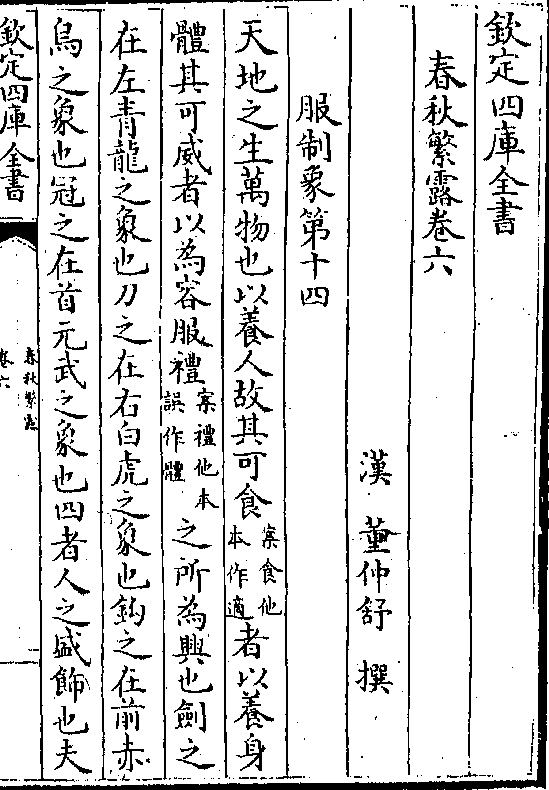 欽定四庫全書
春秋繁露卷六
漢 董仲舒 撰
服制象第十四
天地之生萬物也以養人故其可食案食他本作適者以養身
體其可威者以為容服禮案禮他本誤作體之所為興也劍之
在左青龍之象也刀之在右白虎之象也鈎之在前赤
鳥之象也冠之在首元武之象也四者人之盛飾也夫
欽定四庫全書
春秋繁露
卷六